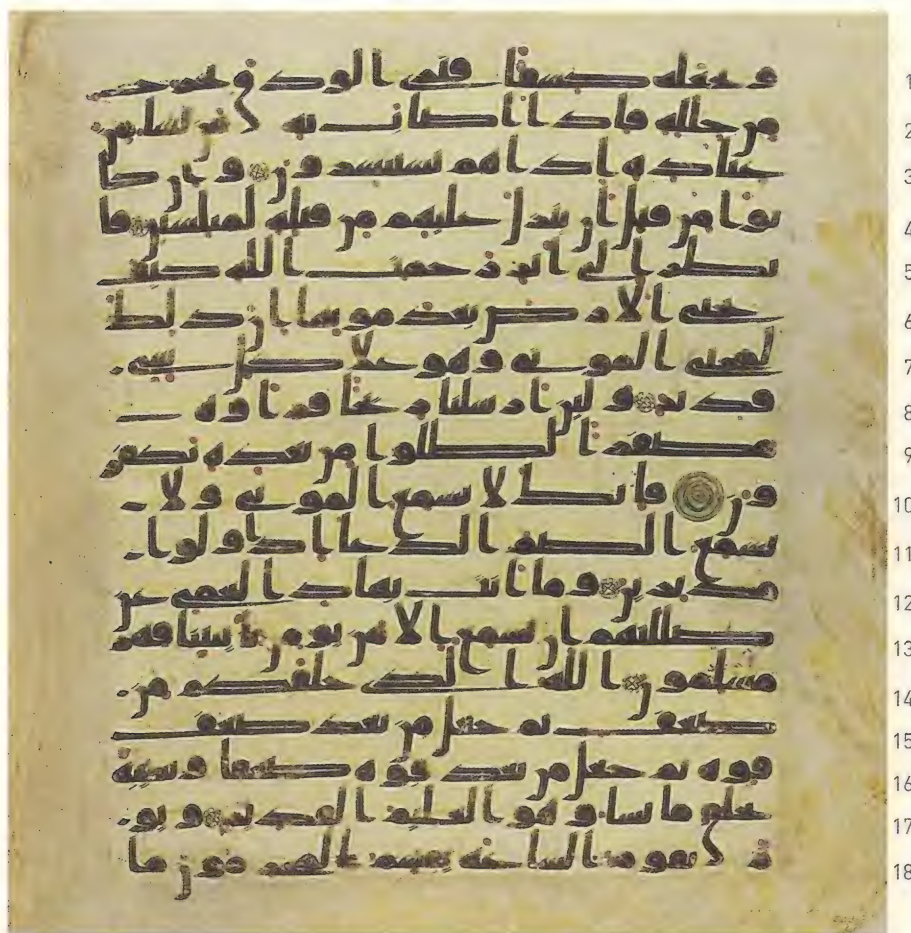 1 ويجعله كسفا فترى الودق يخرج
2 من خلله فاذا اصاب به من يشا من
3 عباده اذا هم يستبشرون وان كا
4 نوا من قبل ان ينزل عليهم من قبله لمبلسين فا
5 نظر الى اثر رحمت الله كيف
6 يحيى الارض بعد موتها ان ذلك
7 لمحيى الموتى وهو على كل شى
8 قدير ولئن ارسلنا ريحا فراوه
9 مصفرا لظلوا من بعده يكفر
10 ون فانك لا تسمع الموتى ولا
11 تسمع الصم الدعا اذا ولوا
12 مدبرين وما انت بهاد العمى عن
13 ضللتهم ان تسمع الا من يومن بايتنا فهم
14 مسلمون الله الذى خلقكم من
15 ضعف ثم جعل من بعد ضعف
16 قوة ثم جعل من بعد قوة ضعفا وشيبة
17 يخلق ما يشا وهو العليم القدير ويو
18 م تقوم الساعة يقسم المجرمون ما